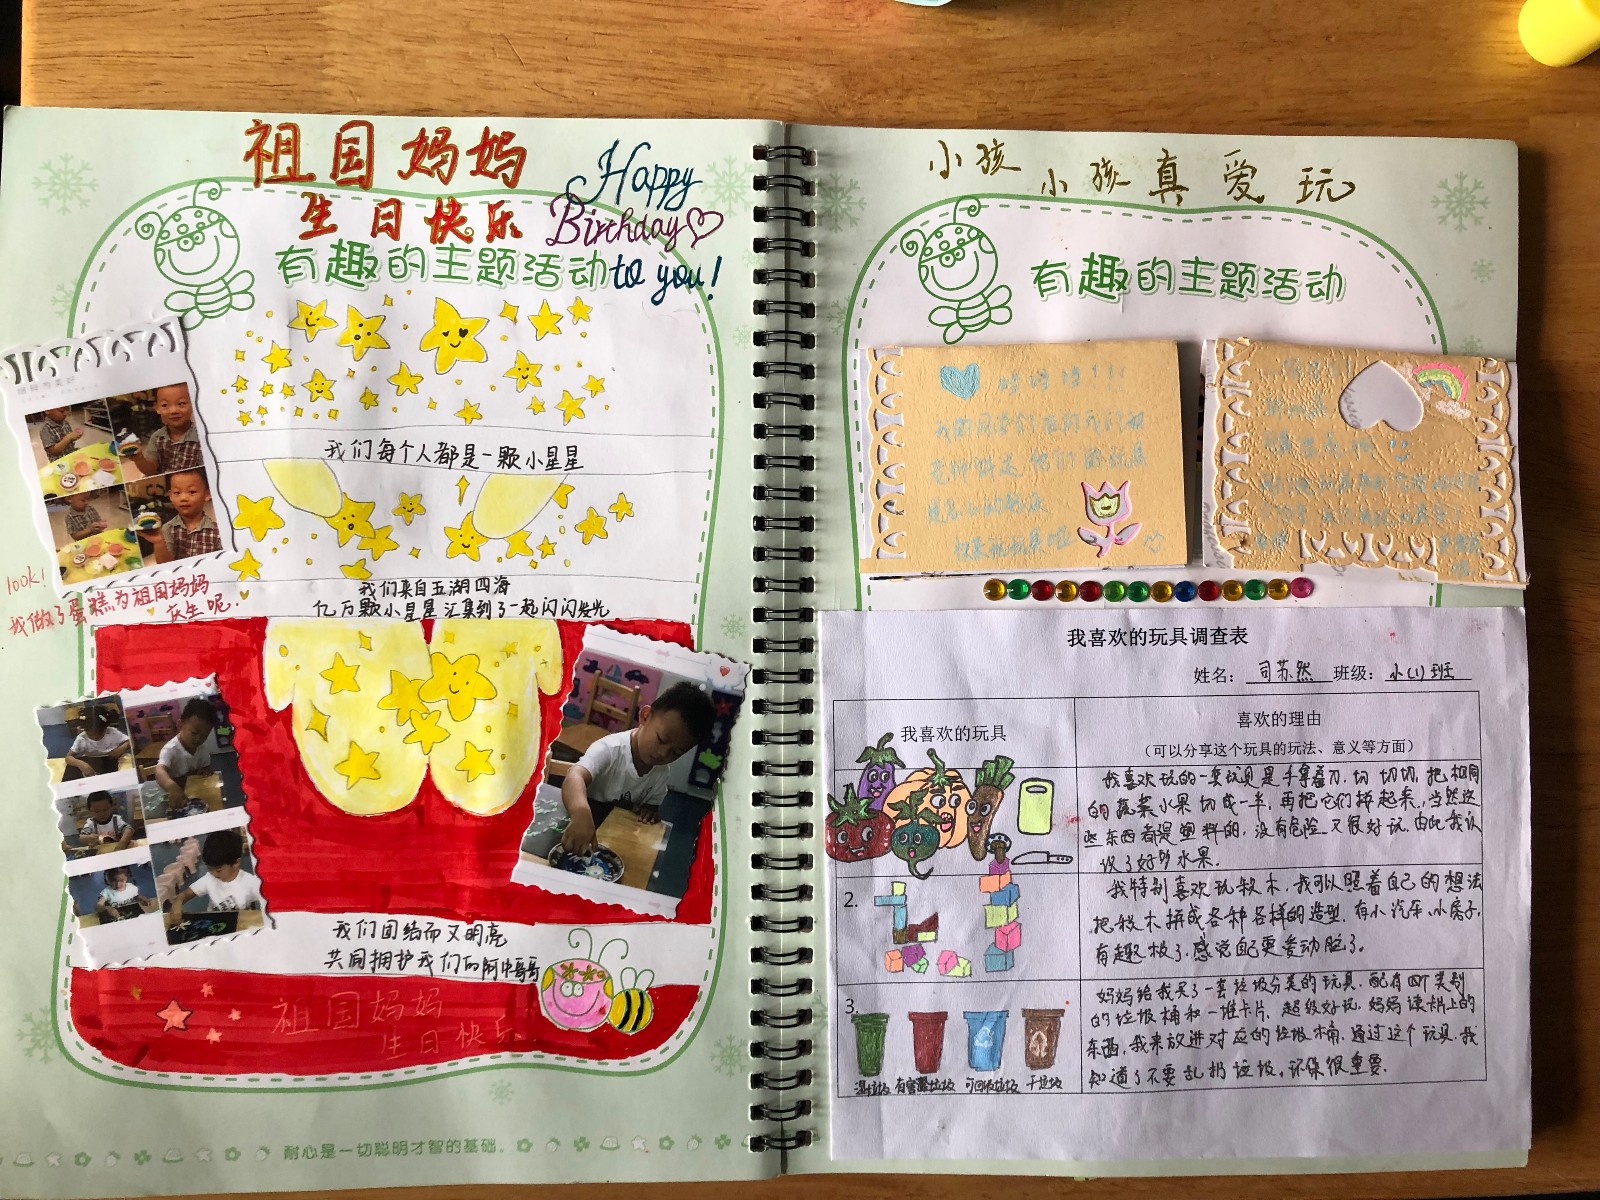 祖国妈妈
生日快乐
Happy
Birthday
to you!
有趣的主题活动
我们每个人都是一颗小星星
我们来自五湖四海
亿万颗小星星汇集到了一起闪闪发光
look!
我做了蛋糕为祖国妈妈
庆生呢.
我们团结而又明亮
共同拥护我们的阿中哥哥
祖国妈妈
生日快乐
耐心是一切聪明才智的基础。
小孩
小孩真爱玩
有趣的主题活动
我喜欢的玩具调查表
姓名：司苏然 班级：小(1)班
我喜欢的玩具
喜欢的理由
（可以分享这个玩具的玩法、意义等方面）
我喜欢玩的一套玩具是手拿着刀,切切切,把相同
的蔬菜水果切成一半,再把它们拼起来,当然这
些东西都是塑料的,没有危险又很好玩.由此我认
识了好多水果.
2.
我特别喜欢玩积木.我可以照着自己的想法
把积木拼成各种各样的造型.有小汽车,小房子.
有趣极了.感觉自己更爱动脑了。
3.
妈妈给我买了一套垃圾分类的玩具.配有四个类别
的垃圾桶和一堆卡片,超级好玩,妈妈读卡片上的
东西,我来放进对应的垃圾桶,通过这个玩具.我
知道了不要乱扔垃圾,环保很重要.
湿垃圾 有害垃圾 可回收垃圾 干垃圾